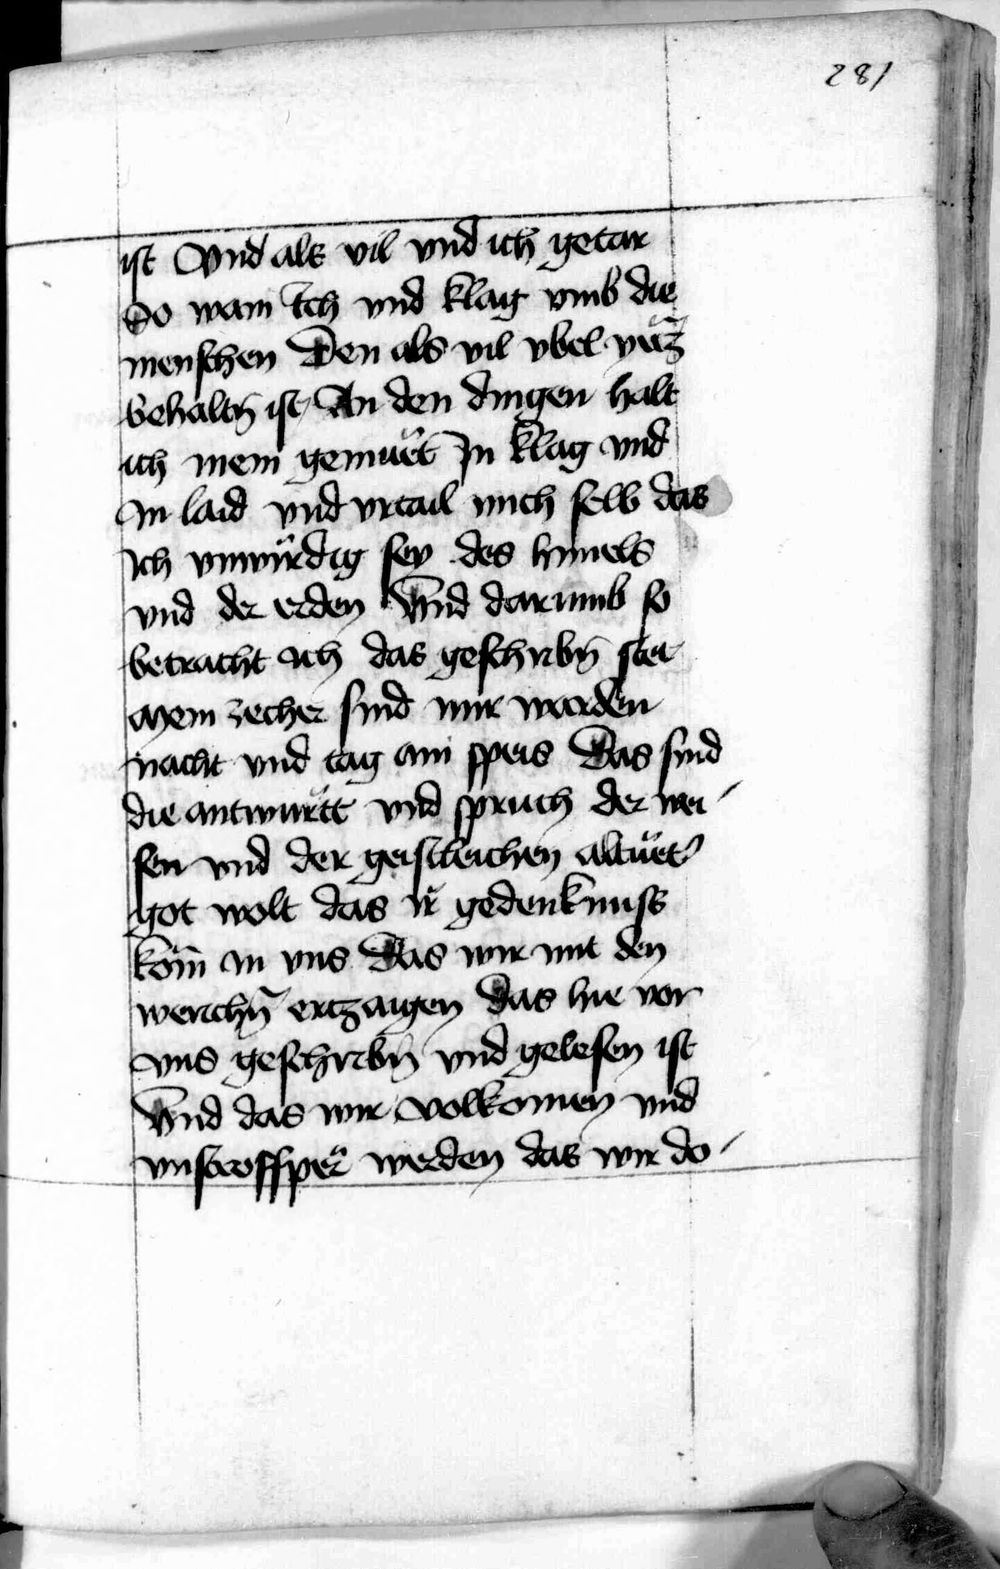 281
ist Vnd als vil vnd ich getar
So wain Ich vnd klag vmb die
menschen Den als vil vbel
behaltn̄ ist / An den dingen halt
ich mein gemuͤt In klag vnd
in laid vnd vrtail mich selb das
ich vnwirdig sey des himels
vnd der erden Vnd darumb so
betracht ich das geschribn̄ stet
Mein zecher sind mir worden
nacht vnd tag ain speis Das sind
die antwurtt vnd spruch der wei-
sen vnd der geistleichen altuͤet
got wolt das ir gedenknuss
kom̄ in vns Das wir mit den
werichn̄ ertzaigen das hie vor
vns geschribn̄ vnd gelesen ist
Vnd das wir volkomen vnd
vnstroffper werden das wir do-